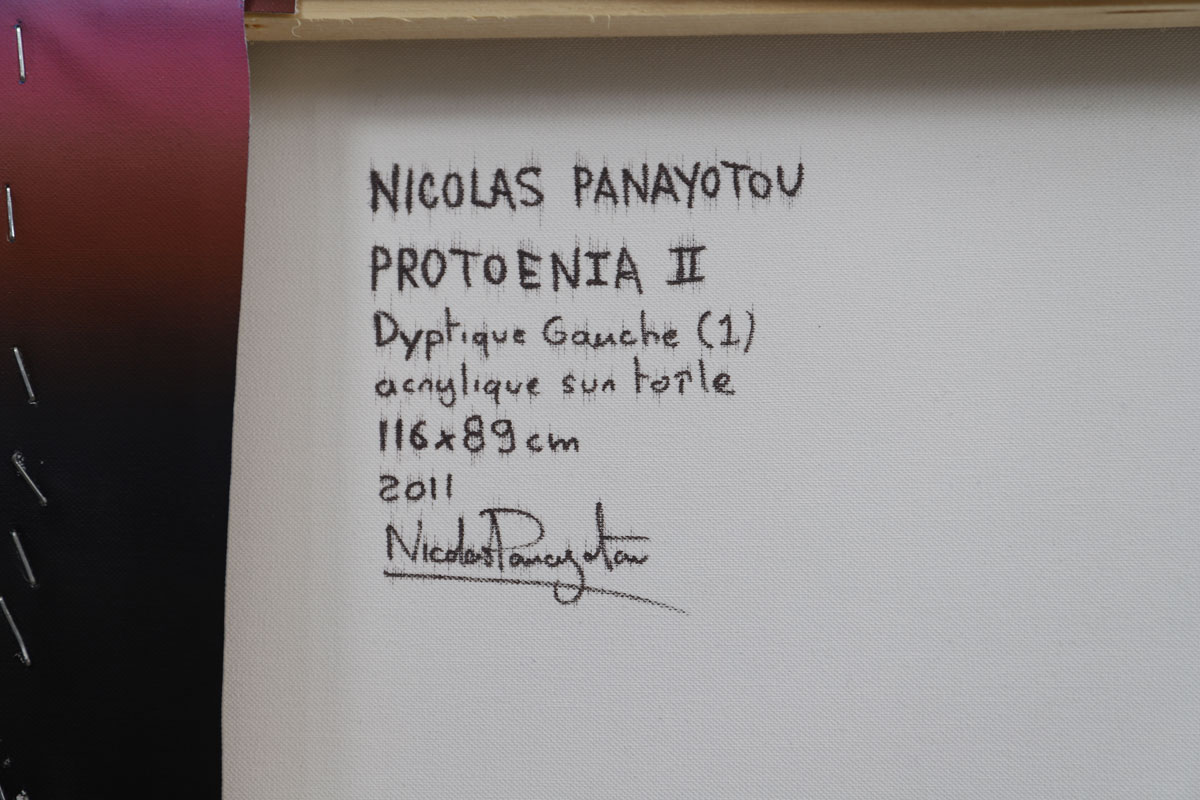 NICOLAS PANAYOTOU
PROTOENIA II
Dyptique Gauche (1)
acrylique sur toîle
116x89cm
2011
Nicolas Panayotou